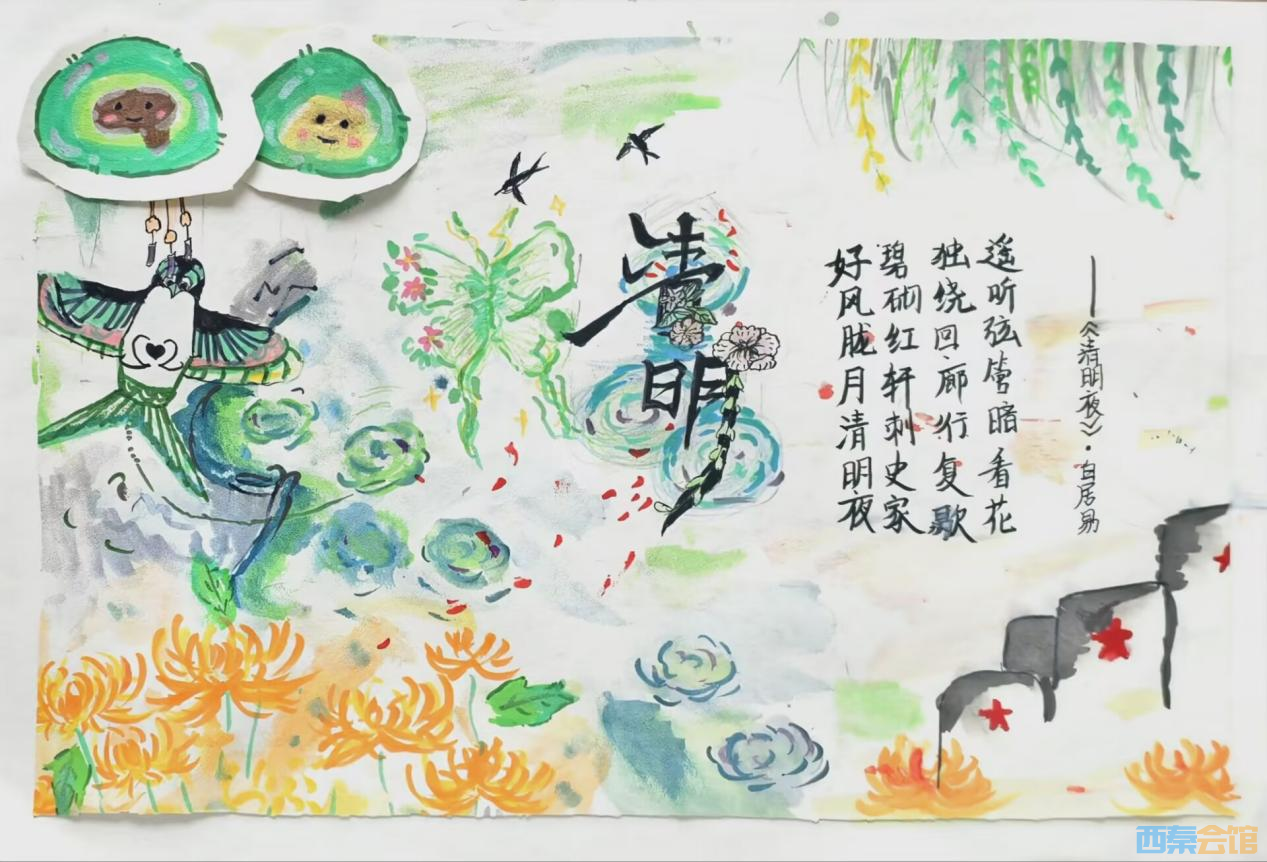 清明
好风胧月清明夜
碧砌红轩刺史家
独绕回廊行复歇
遥听弦管暗看花
——《清明夜》·白居易
西秦会馆